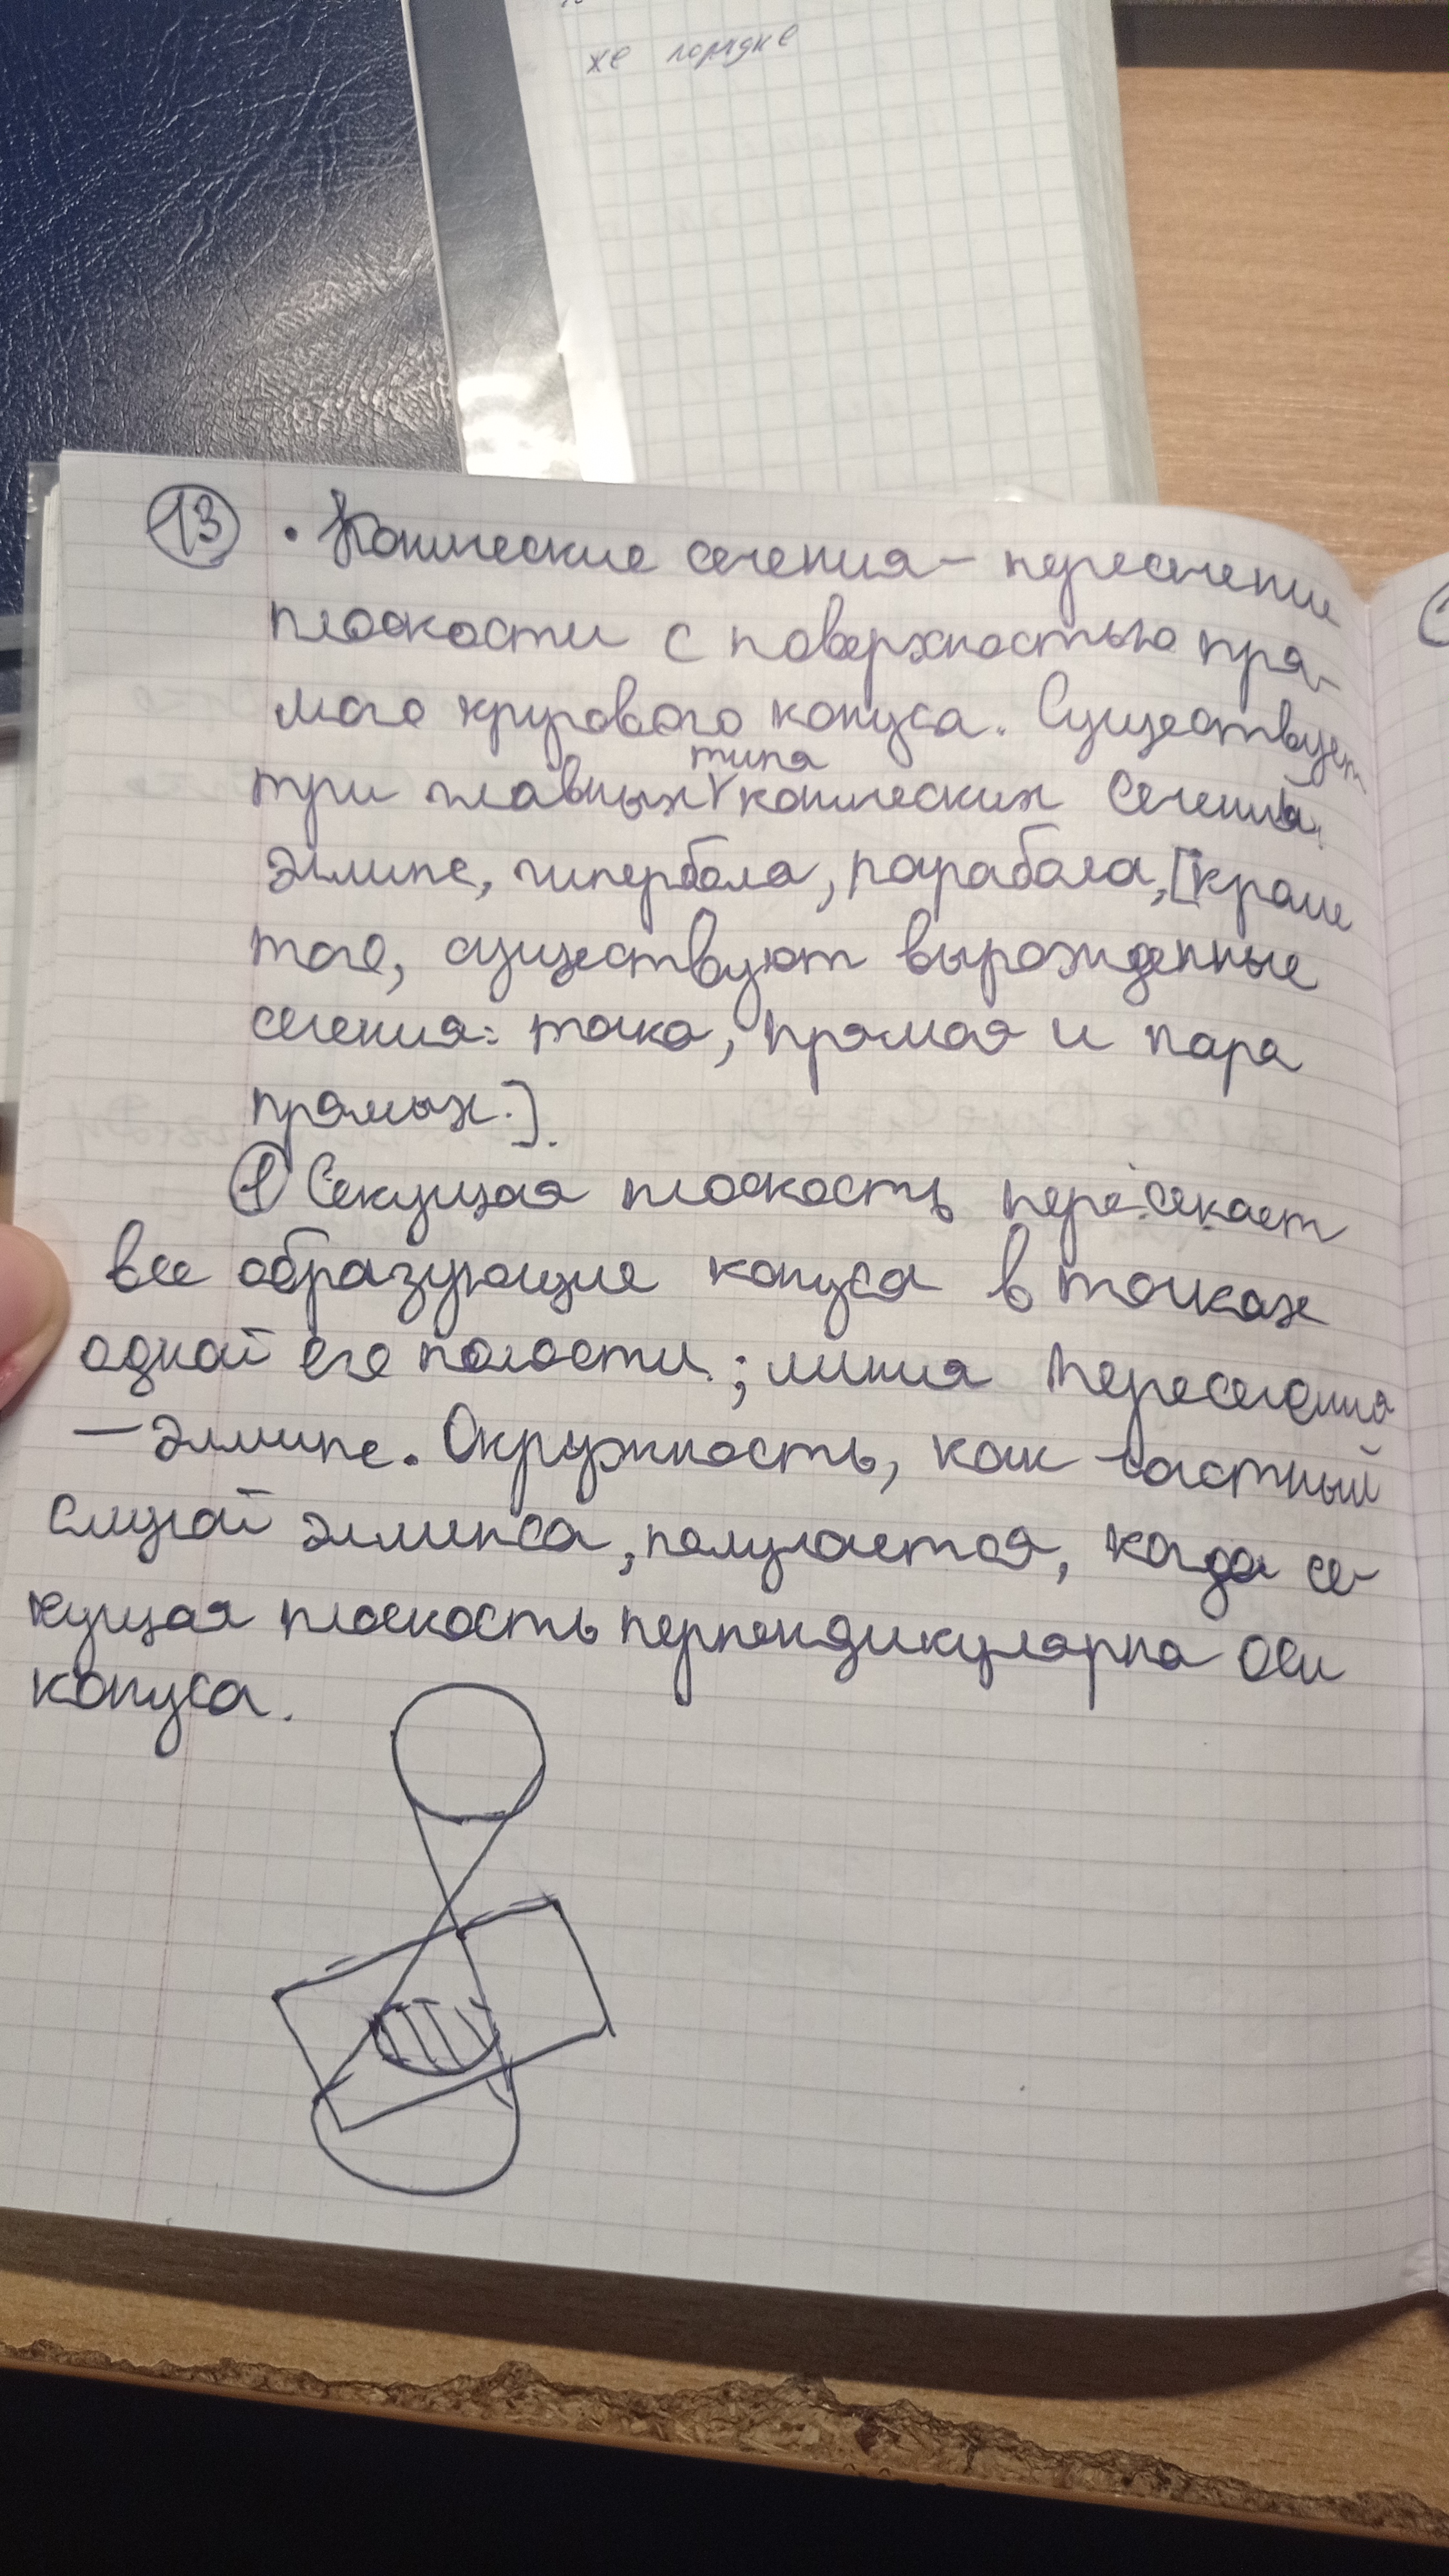 же порядке
13 • Конические сечения – пересечение
плоскости с поверхностью пря-
мого кругового конуса. Существует
типа
три главных V конических сечений:
эллипс, гипербола, парабола, [кроме
того, существуют вырожденные
сечения: точка, прямая и пара
прямых.].
1 Секущая плоскость пересекает
все образующие конуса в точках
одной его полости; линия пересечения
– эллипс. Окружность, как частный
случай эллипса, получается, когда се-
кущая плоскость перпендикулярна оси
конуса.